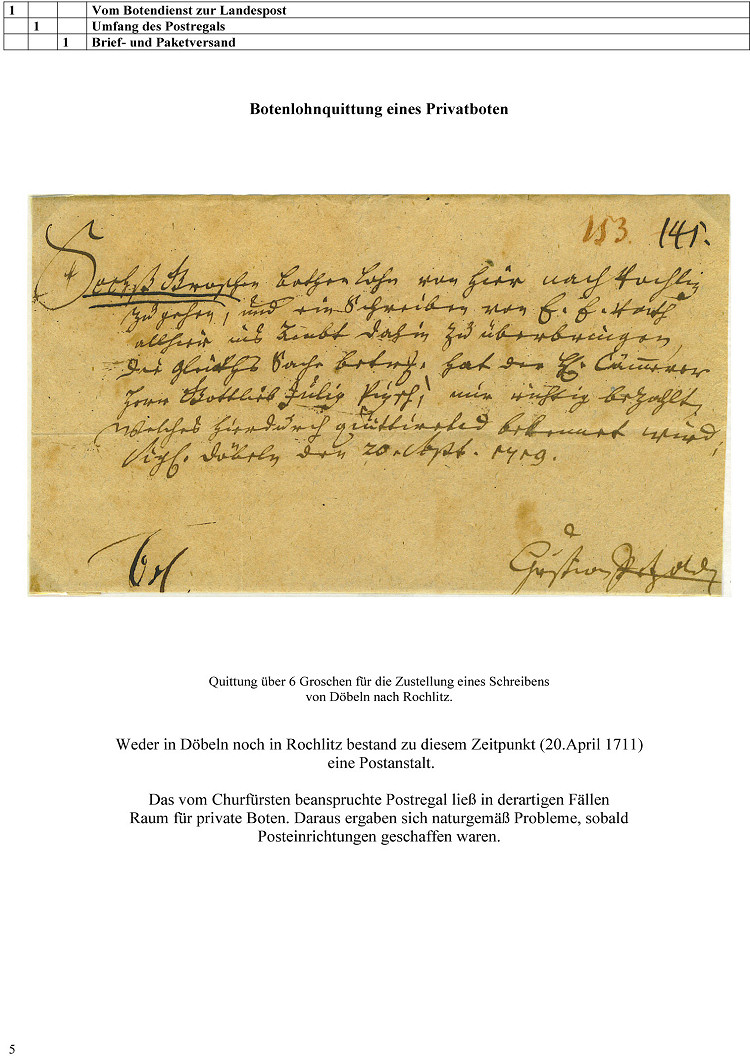 1 Vom Botendienst zur Landespost
1 Umfang des Postregals
1 Brief- und Paketversand
Botenlohnquittung eines Privatboten
153. 141.
Sechß Groschen bothenlohn von hier nach Rochliz
zu gehen, und ein Schreiben von E. E. Rath
allhier ins Ambt dahin zu überbringen,
die Sache betr. hat der H. Cämmerer
Herr Gottlieb mir richtig bezahlt,
welches hierdurch quittirend bekennet wird,
Sigl. Döbeln den 20.
6 gl.
Christian
Quittung über 6 Groschen für die Zustellung eines Schreibens
von Döbeln nach Rochlitz.
Weder in Döbeln noch in Rochlitz bestand zu diesem Zeitpunkt (20.April 1711)
eine Postanstalt.
Das vom Churfürsten beanspruchte Postregal ließ in derartigen Fällen
Raum für private Boten. Daraus ergaben sich naturgemäß Probleme, sobald
Posteinrichtungen geschaffen waren.
5